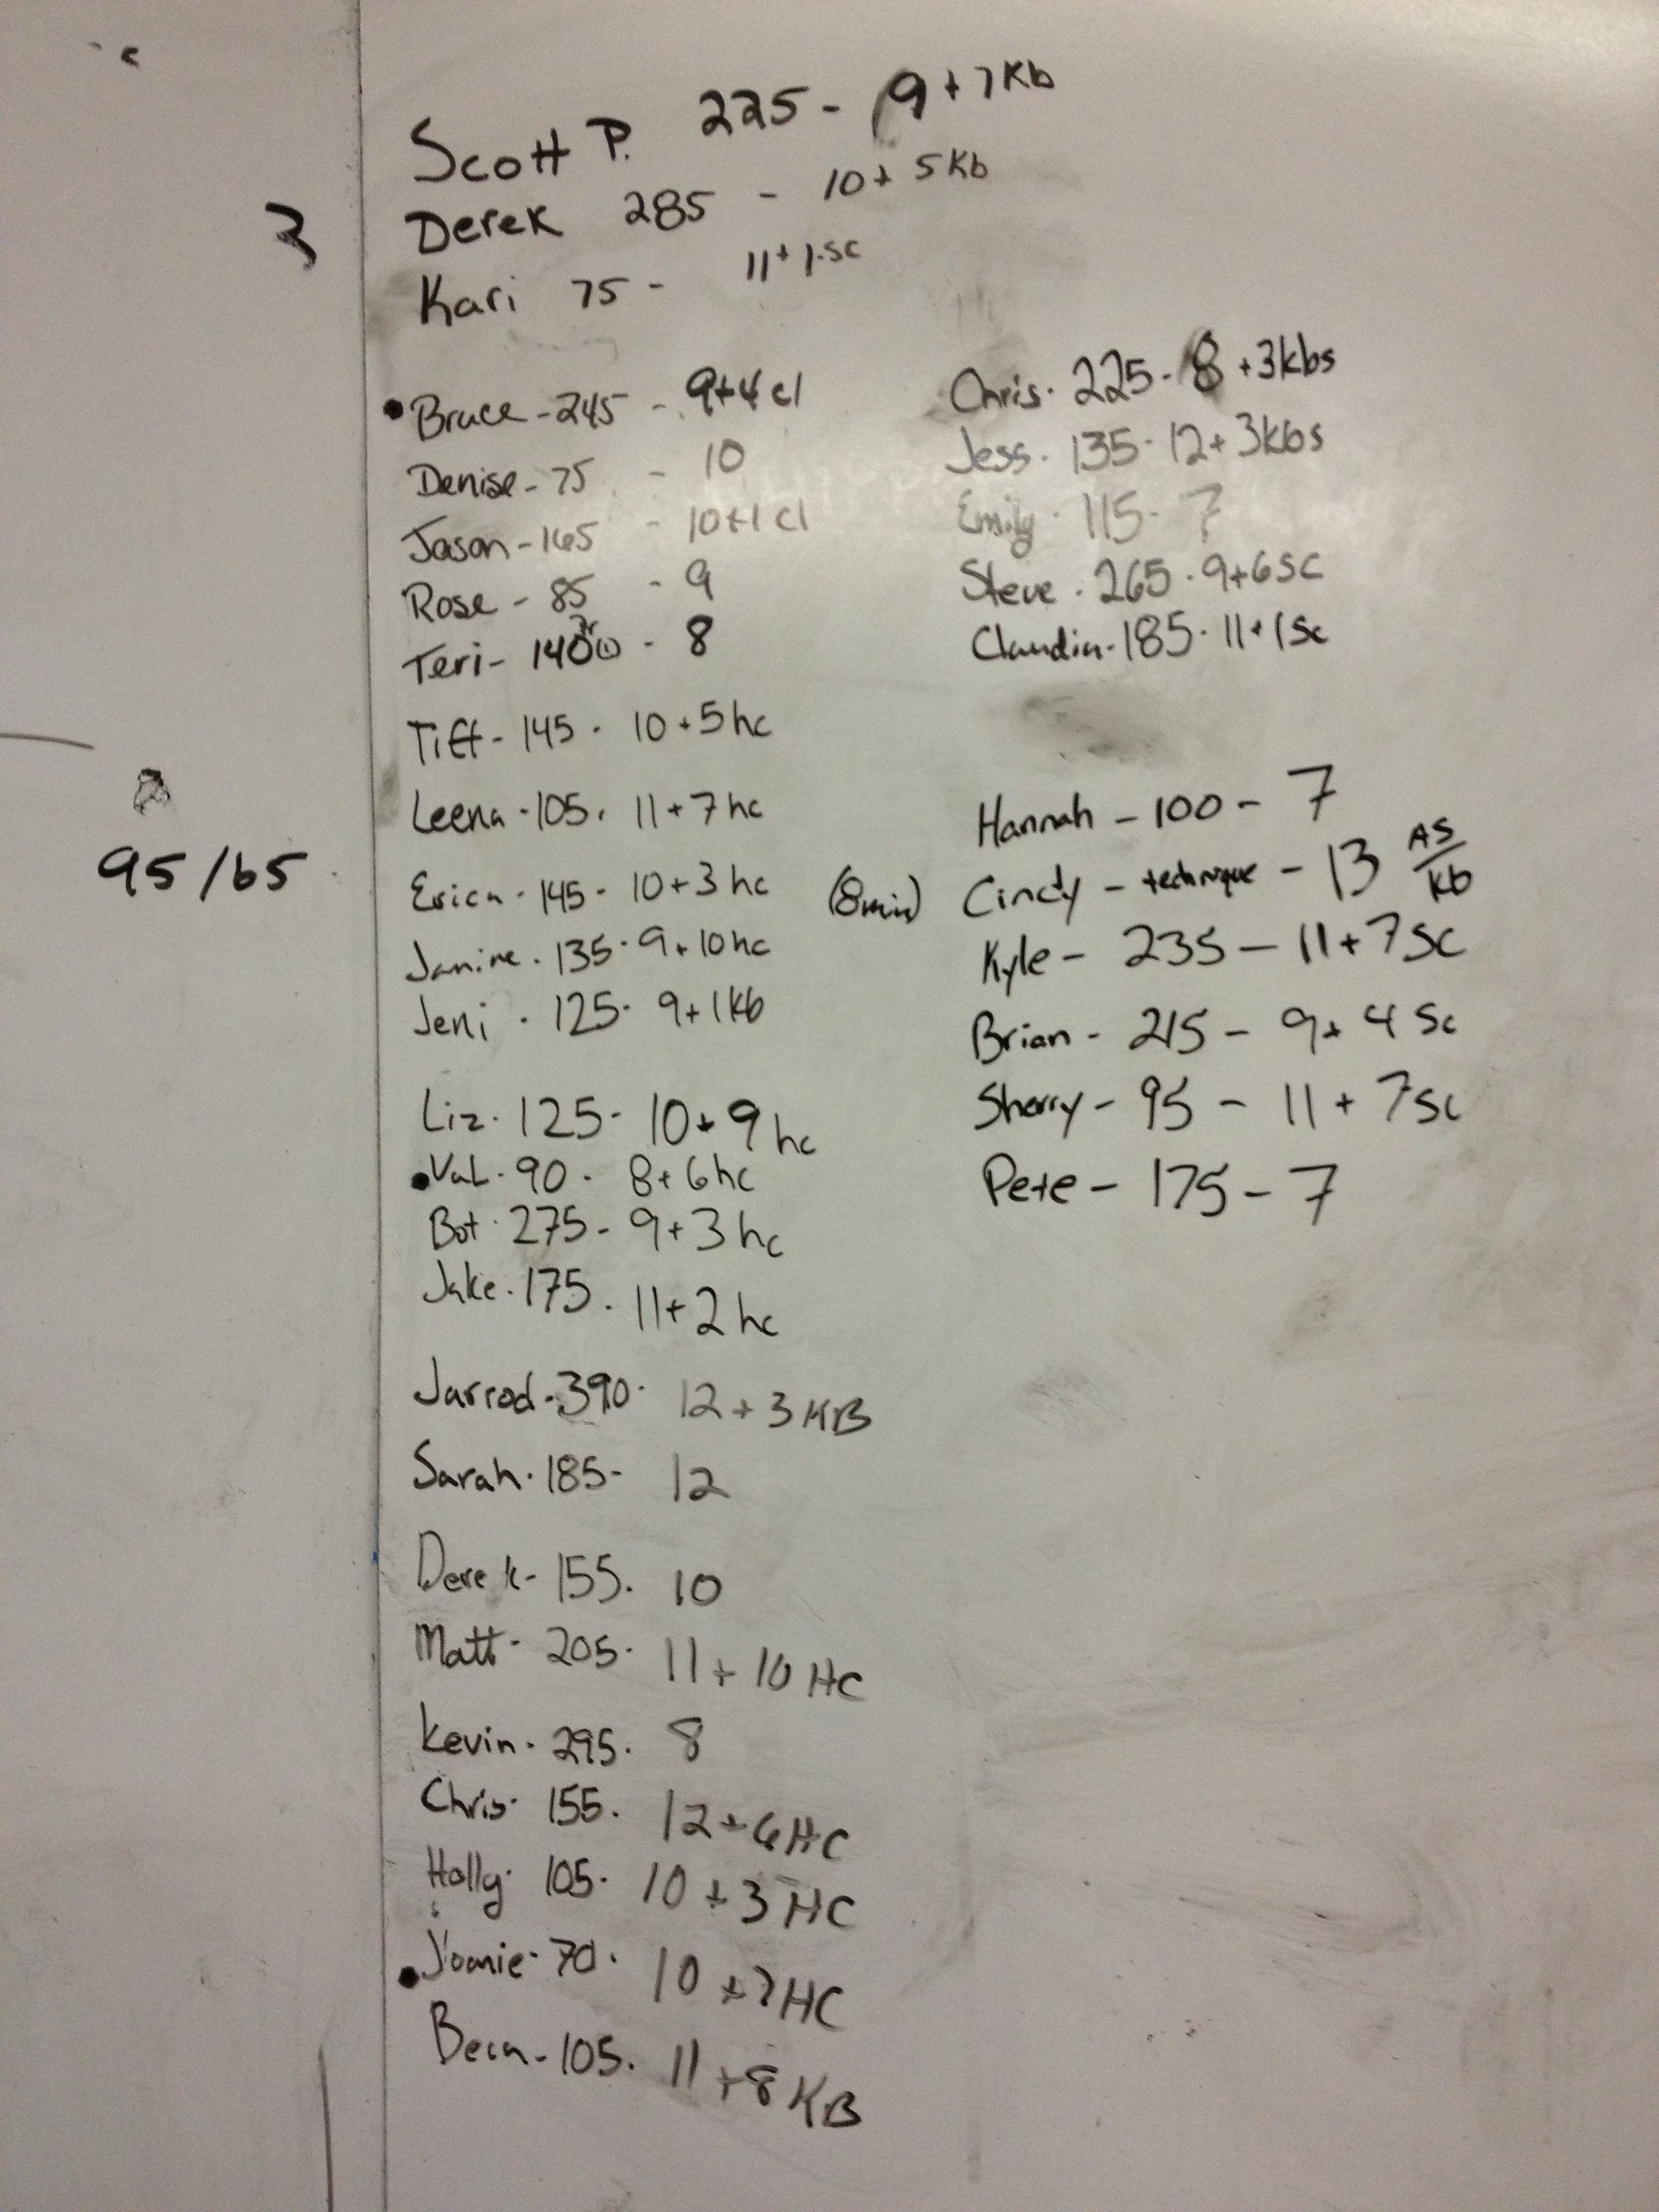 Scott P. 225 - 9+7Kb
Derek 285 - 10+ 5Kb
Kari 75 - 11+1.sc
Bruce - 245 - 9+4 cl
Denise - 75 - 10
Jason - 165 - 10+1 cl
Rose - 85 - 9
Teri - 140 - 8
Tiff - 145 - 10+5hc
Leena - 105. 11+7hc
95/65
Erica - 145 - 10+3 hc
Janine - 135 - 9+10hc
Jeni - 125 - 9+1Kb
Liz - 125 - 10+9 hc
Val - 90 - 8+6hc
Bot - 275 - 9+3 hc
Jake - 175. 11+2 hc
Jarrod - 390 - 12+3KB
Sarah - 185 - 12
Derek - 155. 10
Matt - 205 - 11+10 HC
Kevin - 295. 8
Chris - 155. 12+6HC
Holly - 105 - 10+3 HC
Jamie - 70. 10 + HC
Beca - 105. 11+8KB
Chris - 225 - 8+3kbs
Jess - 135 - 12+3kbs
Emily - 115 - 7
Steve - 265 - 9+6SC
Claudia - 185 - 11+1Sc
Hannah - 100 - 7
(8min) Cindy - technique - 13 AS/Kb
Kyle - 235 - 11+7SC
Brian - 215 - 9+4 Sc
Sherry - 95 - 11+7Sc
Pete - 175 - 7